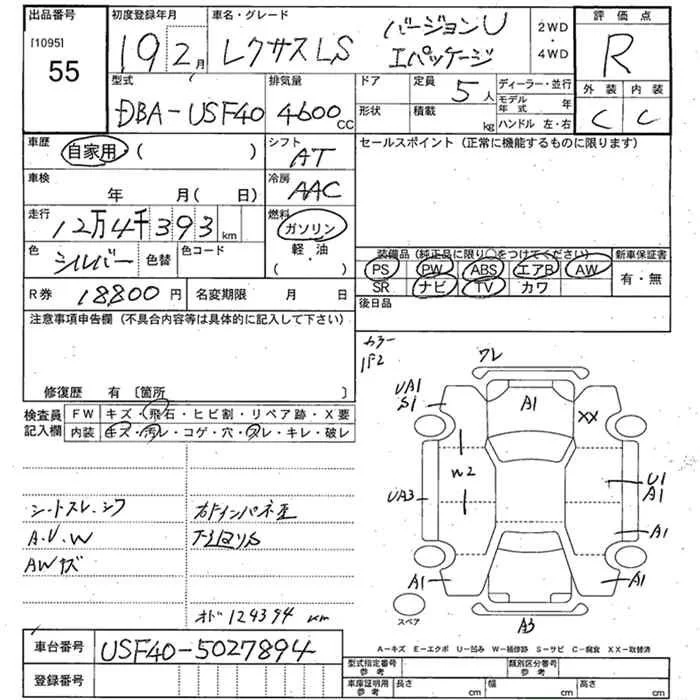 出品番号 初度登録年月 車名・グレード 評価点
[1095] 55
19 2月 レクサスLS バージョンU Iパッケージ 2WD・4WD R
型式 排気量 ドア 定員 ディーラー・並行 外装 内装
DBA-USF40 4600CC 5人 モデル年式 年 C C
形状 積載 kg ハンドル 左・右
車歴 自家用 ( ) シフト AT セールスポイント (正常に機能するものに限ります)
車検 年 月 ( 日) 冷房 AAC
走行 12万4千393km 燃料 ガソリン
色 シルバー 色替 色コード 軽・油 ( )
装備品 (純正品に限り○をつけてください) 新車保証書
PS PW ABS エアB AW 有・無
SR ナビ TV カワ
R券 18,800円 名変期限 月 日 後日品
注意事項申告欄 (不具合内容等は具体的に記入して下さい)
修復歴 有 〔箇所 〕
カラー 1F2
検査員記入欄 FW キズ・飛石・ヒビ割・リペア跡・X要
内装 キズ・汚レ・コゲ・穴・スレ・キレ・破レ
ワレ
UA1
S1
A1
XX
W2
UA3
U1
A1
A1
A1
A1
A3
スペア
シートスレ、シワ
A.U.W
AWキズ
オド 124394 km
A-キズ E-エクボ U-凹み W-補修跡 S-サビ C-腐食 XX-取替済
車台番号 USF40-5027894
型式指定番号 参考 類別区分番号 参考
登録番号
車庫証明用 参考 長さ cm 幅 cm 高さ cm